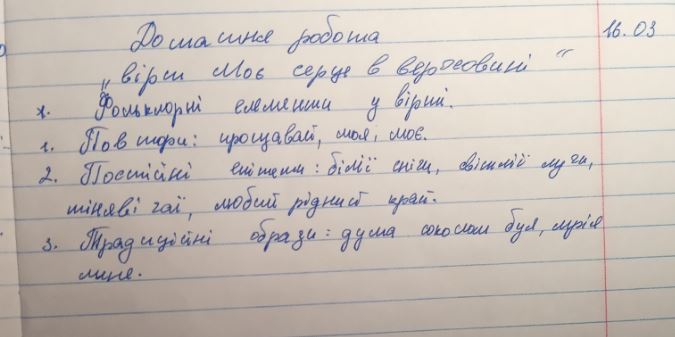 16.03
Домашня робота
„вірш Моє серце в верховині“
1. Фольклорні елементи у вірші.
1. Повтори: прощавай, моя, моє.
2. Постійні епітети: білії сніги, світлії луги,
тіняві гаї, любий рідний край.
3. Традиційні образи: дума соколом був, мрія
лине.